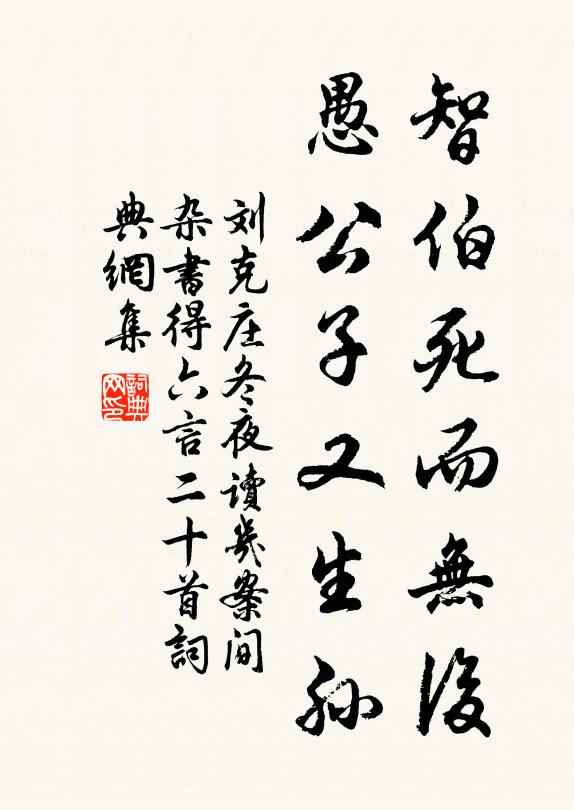 智伯死而無後
愚公子又生孙
刘克庄冬夜讀几案间
杂書得六言二十首詞
典網集
詞典网印